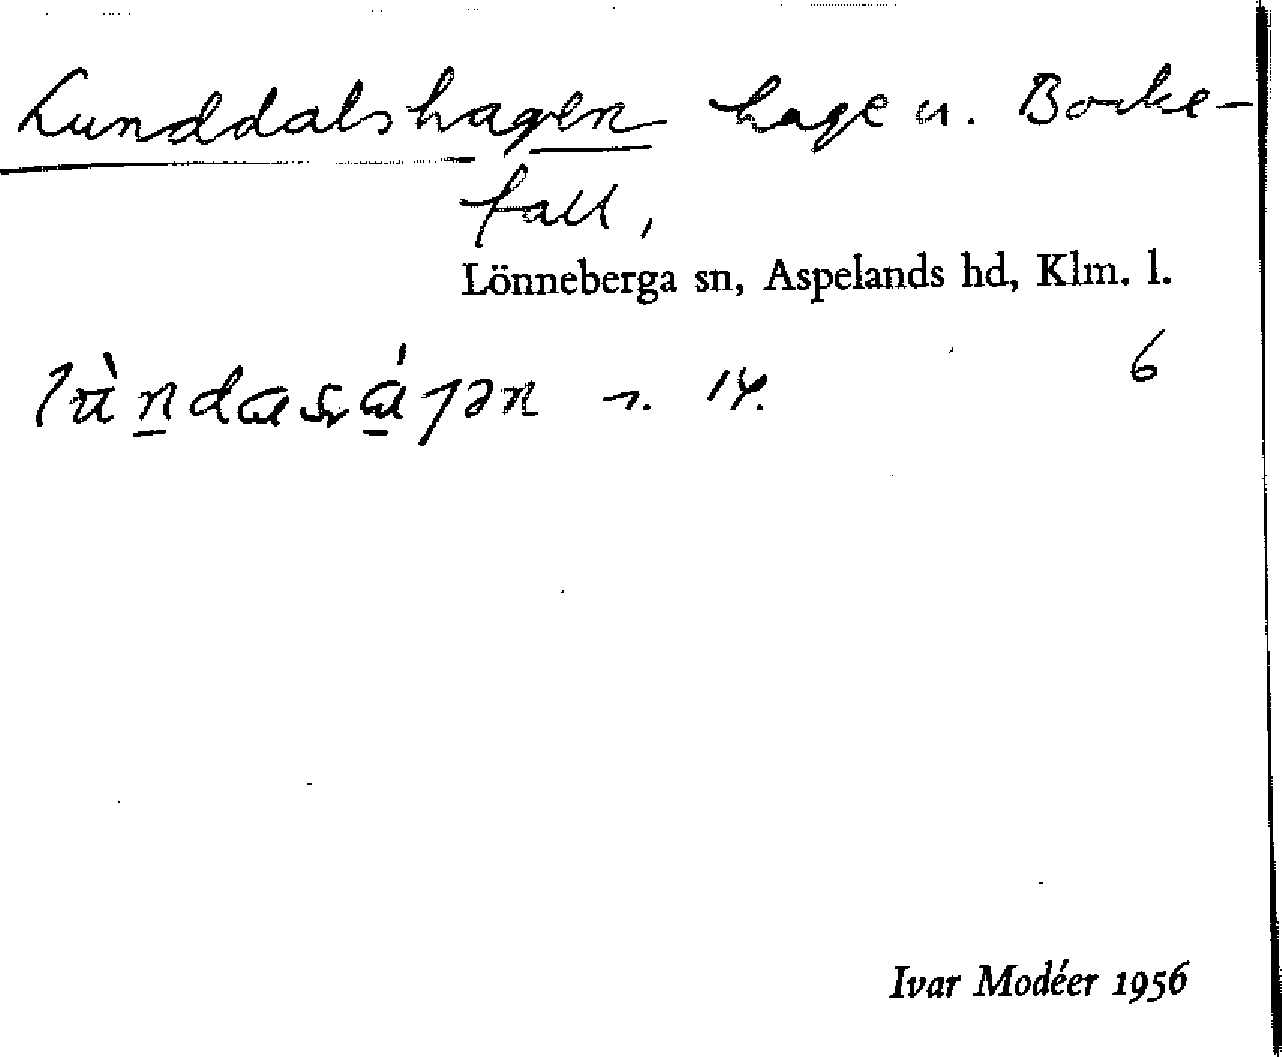 Lunddalshagen hage u. Bocke-
fall,
Lönneberga sn, Aspelands hd, Klm. l.
6
14.
Ivar Modéer 1956